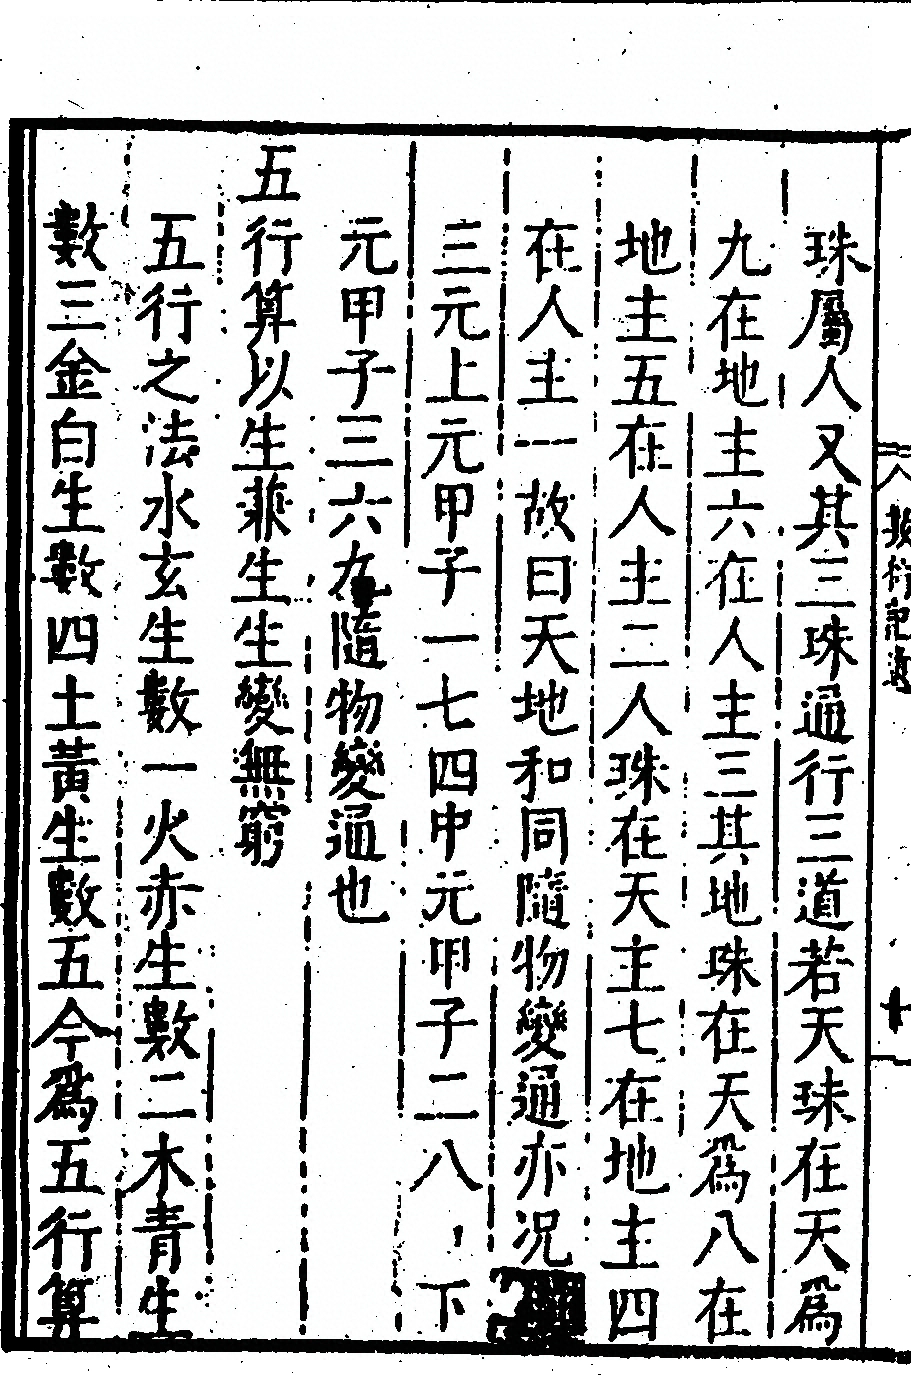 珠屬人又其三珠通行三道若天珠在天爲
九在地主六在人主三其地珠在天爲八在
地主五在人主二人珠在天主七在地主四
在人主一故曰天地和同隨物變通亦况
三元上元甲子一七四中元甲子二八、下
元甲子三六九隨物變通也
五行算以生兼生生變無窮
五行之法水玄生數一火赤生數二木青生
數三金白生數四土黃生數五今爲五行算